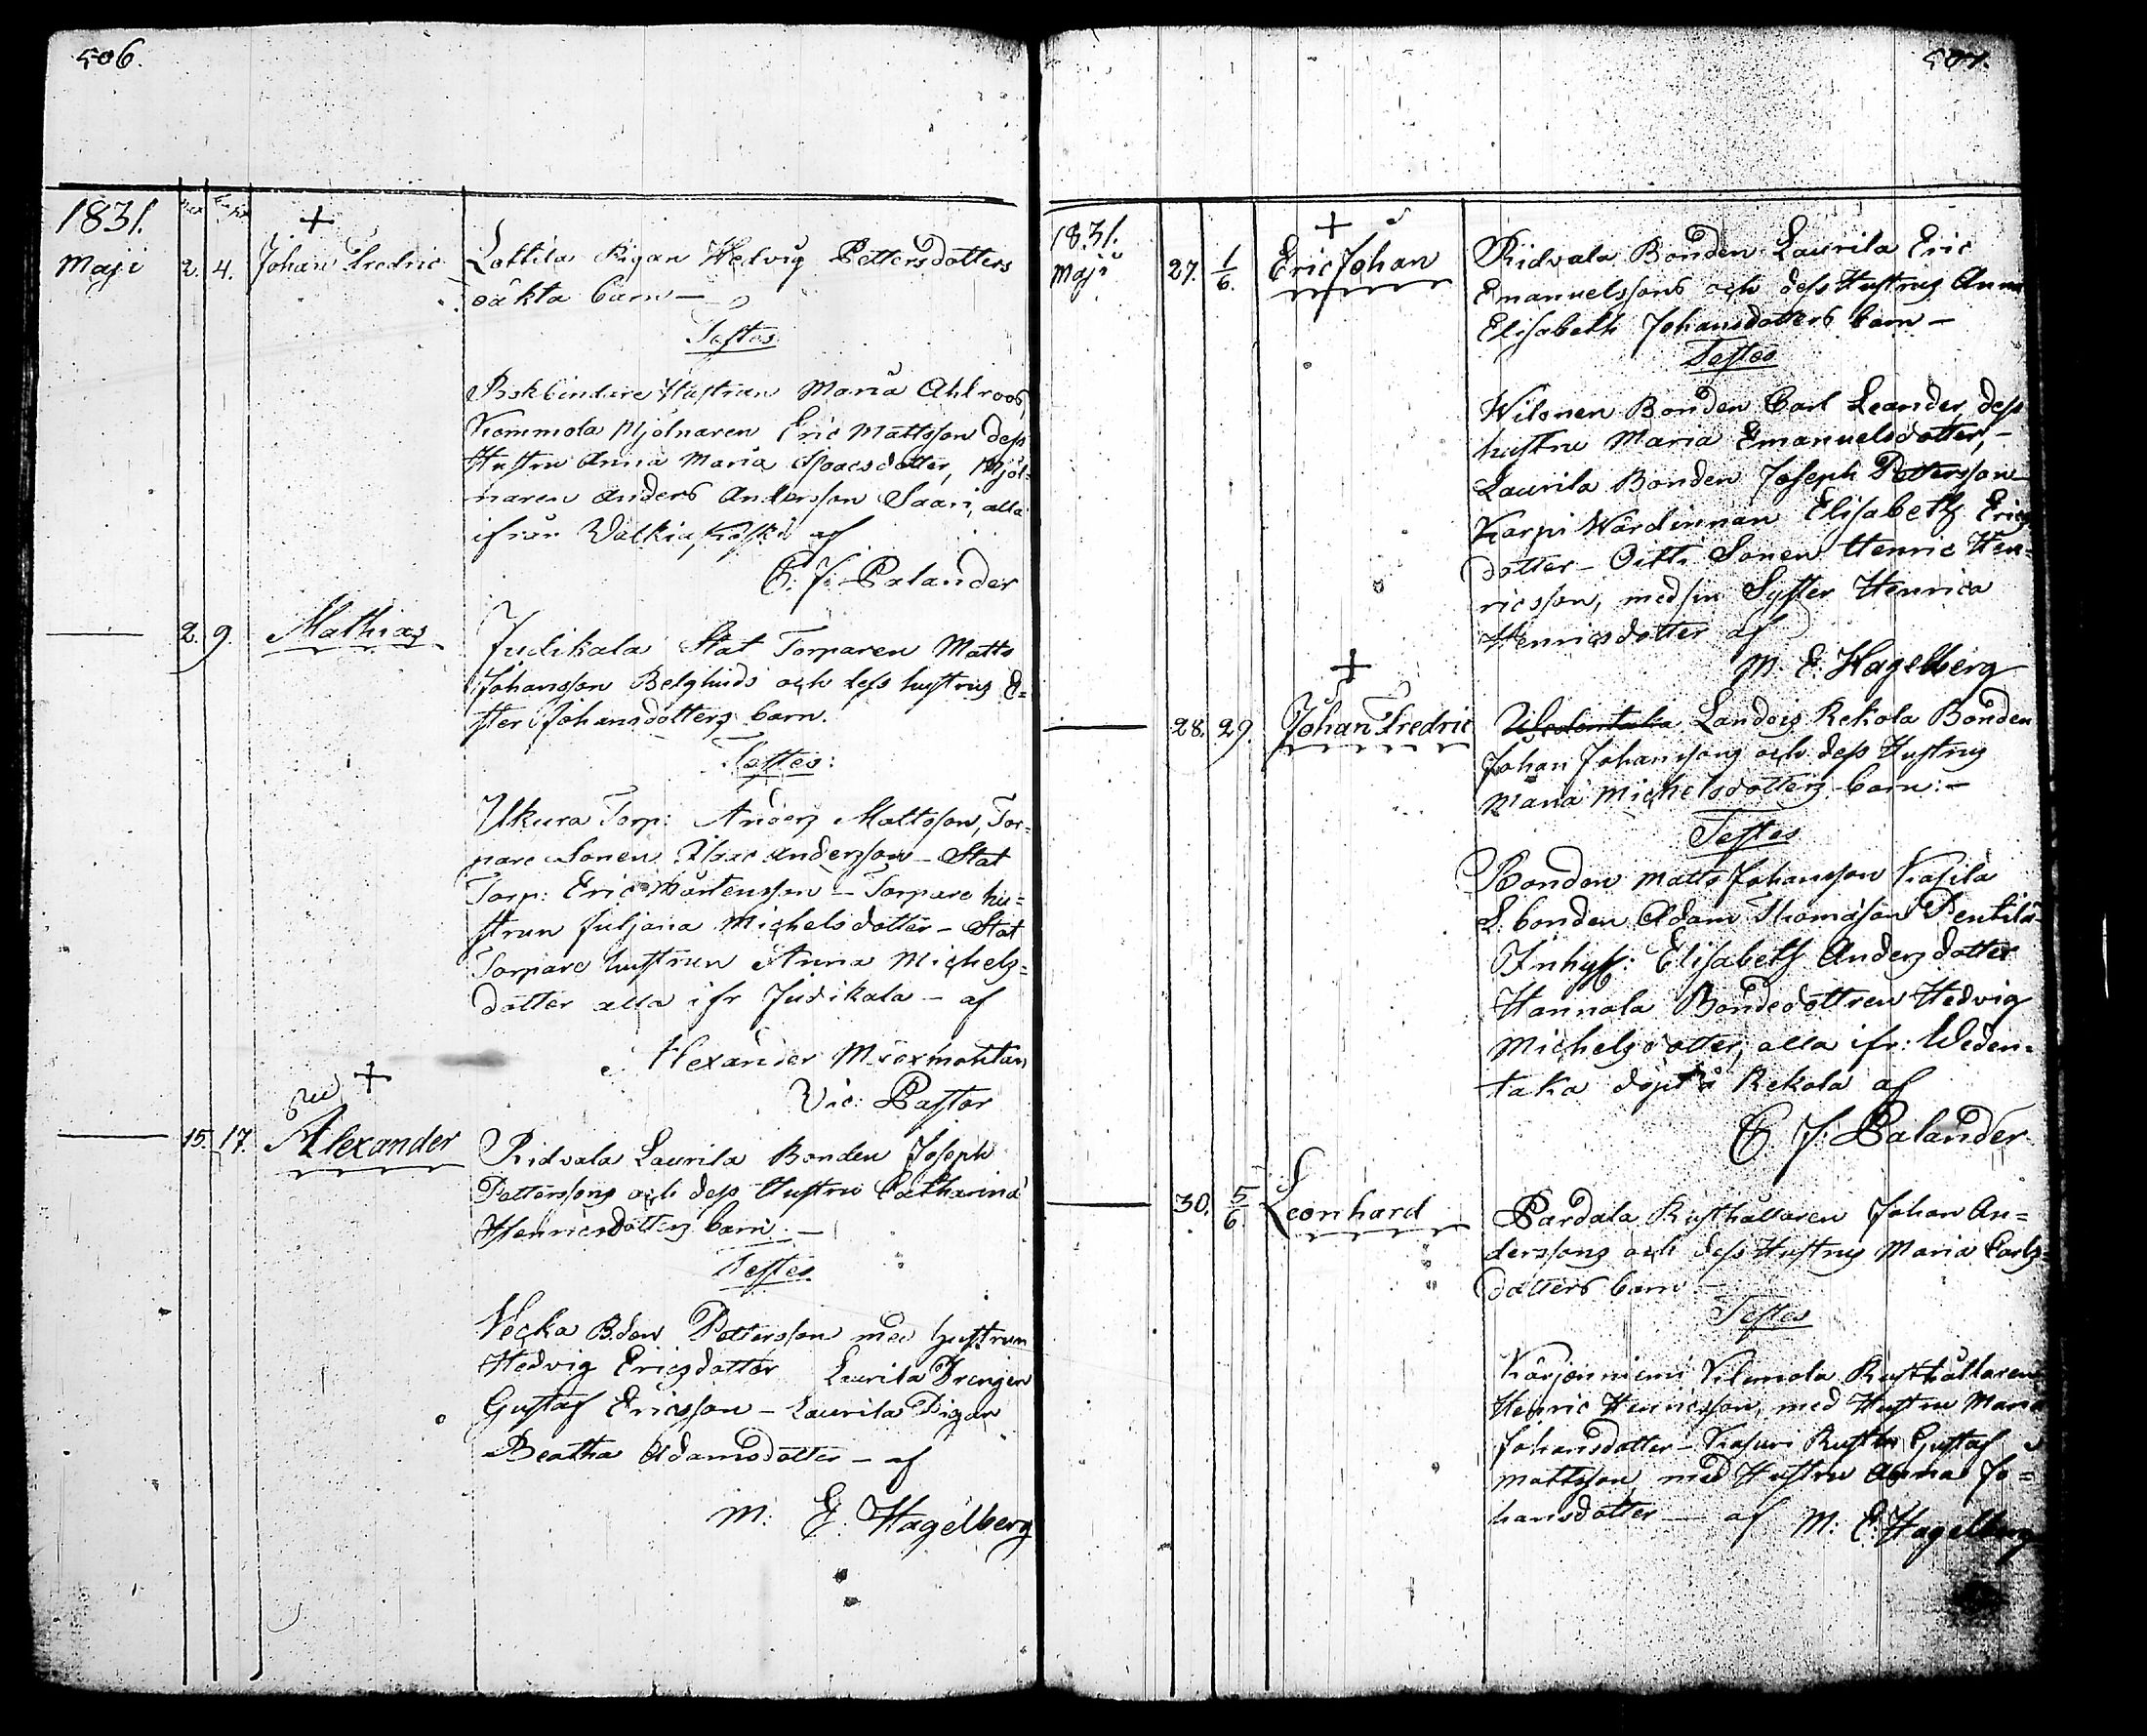 506.
1831.
Maji 2. 4. Johan Fredric Lottila Pigan Hedvig Pettersdotters
oäkta barn —
Testes
Bokbindare Hustrun Maria Ahlroos,
Kommola Mjölnaren Eric Mattsson dess
Hustru Anna Maria Isaacsdotter, Mjöl=
naren Anders Andersson Saari, alla
ifrån Walkiakoski af
C. J. Palander
2. 9. Mathias Judikala Stat Torparen Matts
Johansson Belghids och dess hustrus E=
ster Johansdotters barn.
Testes:
Ukura Torp: Anders Mattsson, Tor=
pare Sonen Isac Andersson — Stat
Torp: Eric Mårtensson — Torpare hu=
strun Juljana Michelsdotter — Stat
Torpare hustrun Anna Michels=
dotter alla ifr Judikala — af
Alexander
Vic: Pastor
15. 17. Alexander Ridvala Laurila Bonden Joseph
Petterssons och dess Hustru Catharina
Henricsdotters barn. —
Testes
Wecka B.den Pettersson med hustrun
Hedvig Ericsdotter Laurila Drengen
Gustaf Ericsson — Laurila Pigan
Beatha Adamsdotter — af
M: E. Hagelberg
507.
1831.
Maji 27. 1/6. Eric Johan Ridvala Bonden Laurila Eric
Emanuelssons och dess Hustrus Anna
Elisabeth Johansdotters barn —
Testes
Wilonen Bonden Carl Leander, dess
hustru Maria Emanuelsdotter, —
Laurila Bonden Joseph Pettersson
Korpi Wärdinnan Elisabeth Erics
dotter — Oitti Sonen Henric Hen=
ricsson, med sin Syster Henrica
Henricsdotter af
M. E. Hagelberg
28. 29. Johan Fredric Wedentaka Landois Rekola Bonden
Johan Johanssons och dess Hustrus
Maria Michelsdotters barn: —
Testes
Bonden Matts Johansson Kasila
L. bonden Adam Thomasson Pentila
Inhys: Elisabeth Andersdotter
Hannola Bondedottren Hedvig
Michelsdotter, alla ifr: Weden=
taka döpt i Rekola af
C. J. Palander
30. 5/6 Leonhard Pardala Rusthållaren Johan An=
derssons och dess Hustrus Maria Carls=
dotters barn
Testes
Karjenniemi Kilemola Rusthållaren
Henric Henricsson, med Hustru Maria
Johansdotter — Kasuri Gustaf
Mattsson med Hustru Anna Jo=
hansdotter — af M: E. Hagelberg